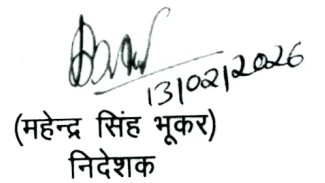 13/02/2026
(महेन्द्र सिंह भूकर)
निदेशक